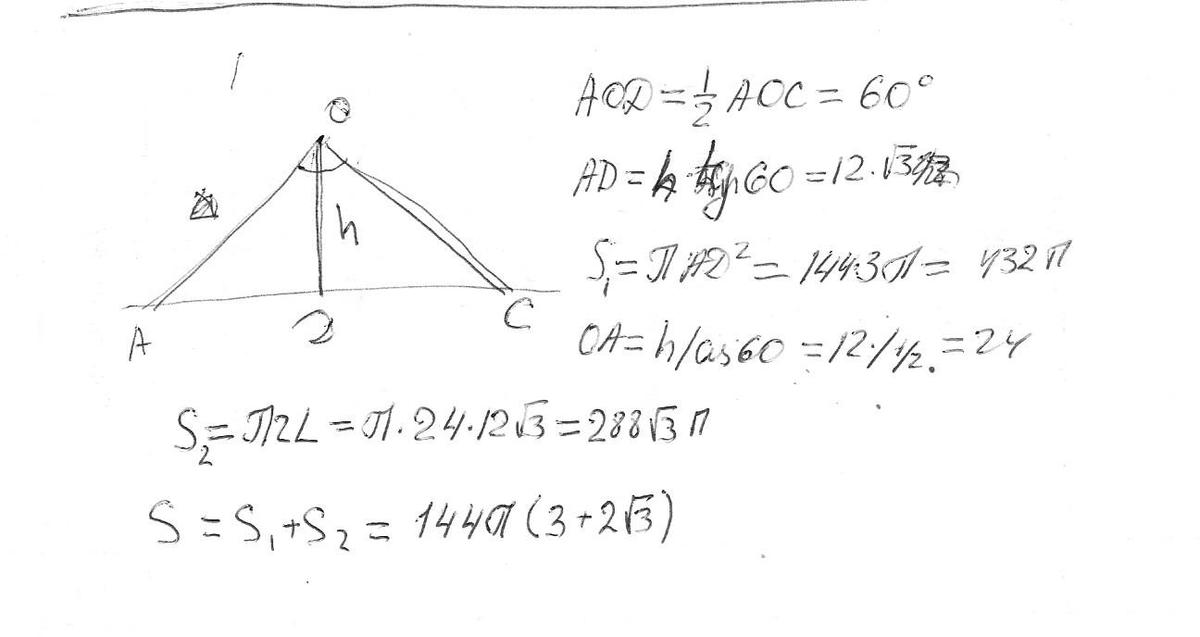 O
h
A
D
C
AOD = 1/2 AOC = 60°
AD = h tg 60 = 12 · √3
S₁ = π AD² = 144·3π = 432 π
OA = h/cos 60 = 12 · / 1/2 = 24
S₂ = πrL = π · 24 · 12√3 = 288√3 π
S = S₁ + S₂ = 144π (3 + 2√3)